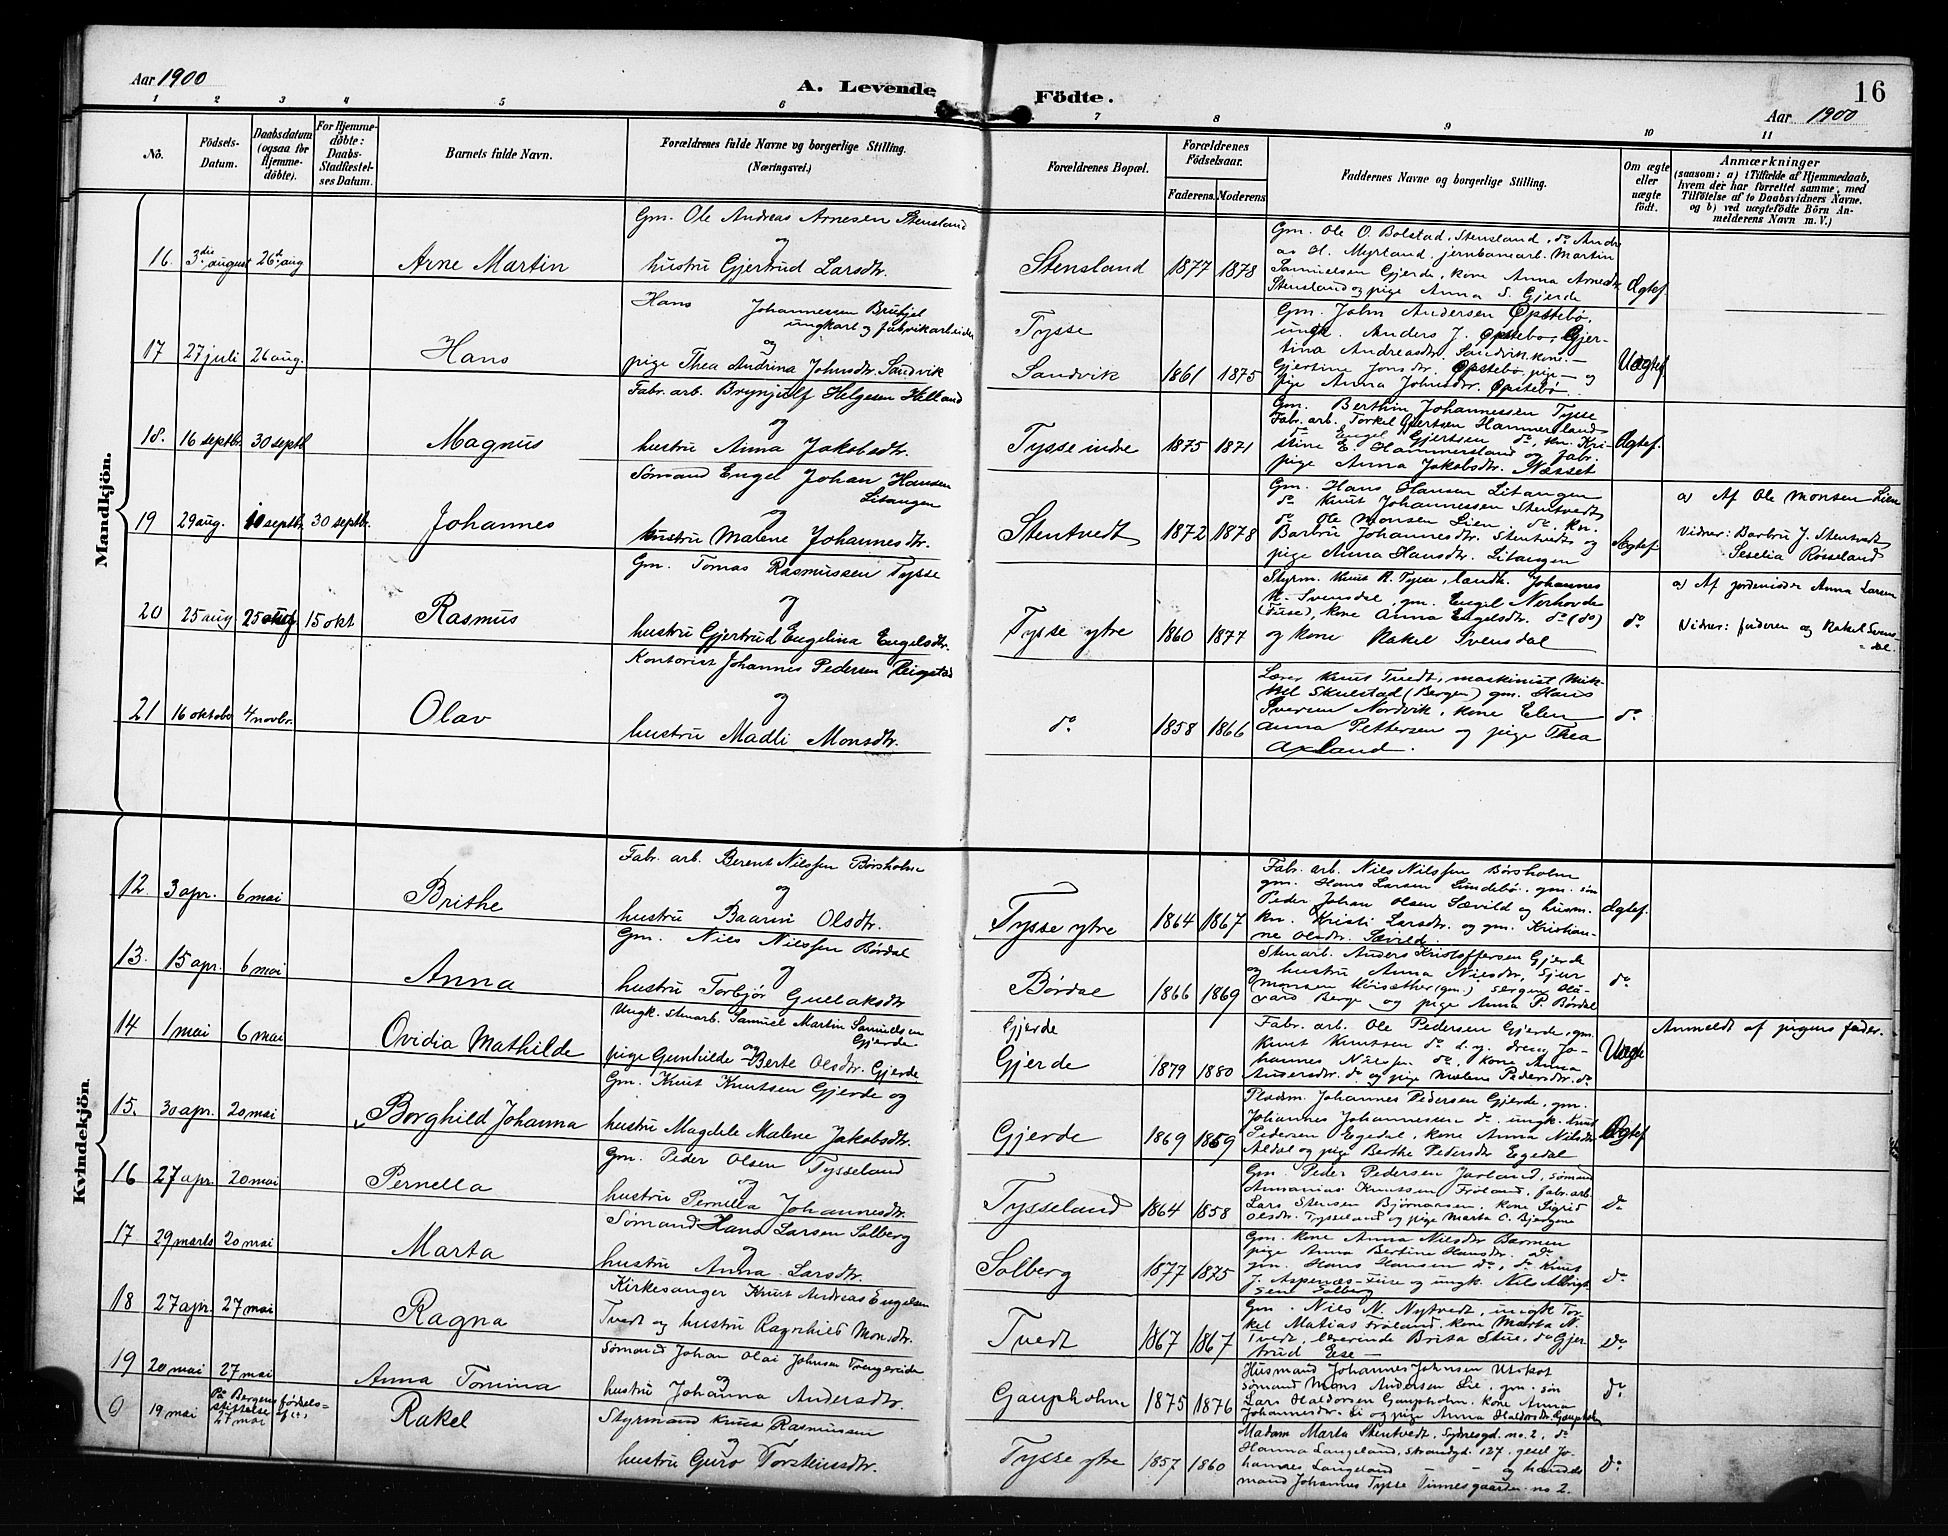 Aar 1900
A. Levende Födte.
16
Aar 1900
1 2 3 4 5 6 7 8 9 10 11
No.
Födsels-Datum.
Daabsdatum (ogsaa for Hjemmedöbte).
For Hjemmedöbte: Daabs-Stadfestelses Datum.
Barnets fulde Navn.
Forældrenes fulde Navne og borgerlige Stilling. (Næringsvei.)
Forældrenes Bopæl.
Forældrenes Födselsaar.
Faderens. Moderens
Faddernes Navne og borgerlige Stilling.
Om ægte eller uægte födt.
Anmærkninger
(saasom: a) i Tilfælde af Hjemmedaab,
hvem der har forrettet samme, med
Tilföielse af to Daabsvidners Navne.
og b) ved uægtefödte Börn An-
melderens Navn m. V.)
Mandkjön.
16. 3die august 26de aug Arne Martin
Gm. Ole Andreas Arnesen Stensland
og
hustru Gjertrud Larsdtr.
Stensland 1877 1878
Gm. Ole O. Bolstad, Stensland, do Andre
as O. Myrland, jernbanearb. Martin
Samuelsen Gjerde, kone Anna Arnesdtr
Stensland og pige Anna S. Gjerde
Ægtef.
17 27 juli 26 aug. Hans
Hans Johannessen
ungkarl og fabrikarbeider
og
pige Thea Andrina Johnsdtr. Sandvik
Tysse
Sandvik 1861 1875
Gm. John Andersen Opstebø,
ungk. Anders J. Opstebø, Gjer-
tina Andreasdtr. Sandvik. kone.-
Gjertine Jonsdtr. Opstebø, pige- og
pige Anna Johnsdtr. Opstebø
Uægtef
18. 16 septbr. 30 septb Magnus
Fabr. arb. Brynjulf Helgesen Helland
og
hustru Anna Jakobsdtr.
Tysse indre 1875 1871
Gm. Berthin Johannessen Tysse
Fabr. arb. Torkel Gjertsen Hammersland
Engel Gjertsen do, kn. Kri-
stine E. Hammersland og fabr.
pige Anna Jakobsdtr. Næsset
Ægtef.
19 29 aug. 10 septbr. 30 septbr. Johannes
Sømand Engel Johan Hansen
Litangen
og
hustru Malene Johannesdtr.
Stentvedt 1872 1878
Gm. Hans Hansen Litangen
do. Knut Johannessen Stentvedt,
do Ole Monsen Lien, do. kn.
Barbru Johannesdtr. Stentvedt og
pige Anna Hansdtr. Litangen
Ægtef.
a) Af Ole Monsen Lien
Vidner: Barbru J. Stentvedt
Seselia Røseland
20 25 aug 25 aug 15 okt Rasmus
Gm. Tomas Rasmussen Tysse
og
hustru Gjertrud Engelina Engelsdtr.
Tysse ytre 1860 1877
Styrm. Knut R. Tysse, landh. Johannes
K. Svensdal, gm. Engel Nerhovde
(Fuse), kone Anna Engelsdtr. do (do)
og kone Rakel Svensdal
do
a) Af jordemoder Anna Larsen
Vidner: faderen og Rakel Svens-
dal.
21 16 oktobr 4 novbr. Olav
Kontorist Johannes Pedersen
og
hustru Madli Monsdtr.
do 1858 1866
Lærer Knut Tvedt, maskinist Mik-
kel Skulstad (Bergen) gm. Hans
Iversen Nordvik, kone Elen
Anna Pettersen og pige Thea
Axland.
do
Kvindekjön.
12. 3 apr. 6 mai Brithe
Fabr. arb. Berent Nilssen Børsholm
og
hustru Baarni Olsdtr.
Tysse ytre 1864 1867
Fabr. arb. Nils Nilssen Børsholm
gm. Hans Larsen Lundebø. gm. søn
Peder Johan Olsen Sævild og husm.
kn. Kristi Larsdtr. og gm. Kristian-
ne Olsdtr. Sævild.
Ægtef.
13. 15 apr. 6 mai Anna
Gm. Nils Nilssen Børdal
og
hustru Torbjør Gullaksdtr
Børdal 1866 1869
Stenarb. Anders Kristoffersen Gjerde
og hustru Anna Nilsdtr, Sjur
Monsen (gm.) sergent Ha-
vard Berge og pige Anna P. Børdal
do.
14 1 mai 6 mai Ovidia Mathilde
Ungk. stenarb. Samuel Martin Samuelsen
Gjerde
og
pige Gunhilde Berte Olsdtr. Gjerde
Gjerde
Gjerde 1879 1880
Fabr. arb. Ole Pedersen Gjerde, gm.
Knut Knutsen do d.y. dreng Jo-
hannes Nilssen do, kone Anna
Andersdtr. do og pige Malene Pedersdtr. do
Uægte
Anmeldt af pigens fader.
15. 30 apr. 20 mai Borghild Johanna
Gm. Knut Knutsen Gjerde og
hustru Magdele Malene Jakobsdtr.
Gjerde 1869 1859
Pladsm. Johannes Pedersen Gjerde, gm.
Johannes Johannessen do, ungk. Knut
Pedersen Egedal, kone Anna Nilsdtr
Aldal og pige Berthe Pedersdtr Egedal
Ægtef
16 27 apr. 20 mai Pernella
Gm. Peder Olsen Tysseland
og
hustru Pernella Johannesdtr.
Tysseland 1864 1858
Gm. Peder Pedersen Jarland, sømand
Annanias Knutsen Frøland, fabr. arb.
Lars Stensen Bjørnaasen, kone Sigrid
Olsdtr. Tysseland og pige Marta C. Bjergene
do
17 29 marts 20 mai Marta
Sømand Hans Larsen Solberg
og
hustru Anna Larsdtr.
Solberg 1877 1875
Gm. kone Anna Nilsdtr Barmen
pige Anna Bertine Hansdtr. do
gm. Hans Hansen do, do Knut
J. Aspenæs-Fuse og ungk. Nils Albrigt-
sen Solberg
do
18 27 apr. 27 mai Ragna
Kirkesanger Knut Andreas Engelsen
Tvedt og hustru Ragnhild Monsdtr.
Tvedt 1867 1867
Gm. Nils N. Nytvedt, ungk Tor-
kel Matias Frøland, kone Marta N.
Tvedt, lærerinde Brita Stue. do Gjer
trud Ese
do
19 20 mai 27 mai Anna Tomina
Sømand Johan Olai Johnsen Trengereide
og
hustru Johanna Andersdtr.
Gaupholm 1875 1876
Husmand Johannes Johnsen
sømand Mons Andersen Lie, gm. søn
Lars Haldorsen Gaupholm. kone Anna
Johannesdtr. Li og pige Anna Haldorsdtr. Gaupholm
do
0 19 mai
På Bergens fødsels-
stiftelse
27 mai
Rakel
Styrmand Knut Rasmussen
og
hustru Guro Torsteinsdtr.
Tysse ytre 1857 1860
Madam Marta Stentvedt, Sydnesgd. no. 2, do
Hanna Langeland, Strandgd. 127, gesel Jo-
hannes Langeland og handels
mand Johannes Tysse Vinnesgaarden no 2.
do